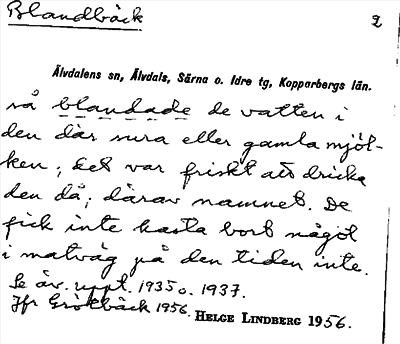 Blandbäck
2
Älvdalens sn, Älvdals, Särna o. Idre tg, Kopparbergs län.
så blandade de vatten i
den där sura eller gamla mjöl-
ken; det var friskt att dricka
den då; därav namnet. De
fick inte kasta bort något
i matväg på den tiden inte.
Se äv. uppt. 1935 o. 1937.
Jfr Grökbäck 1956.
HELGE LINDBERG 1956.